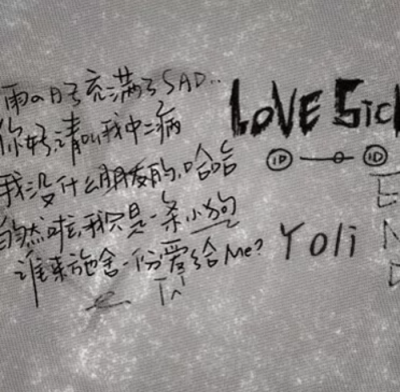 雨の日子充满了SAD..
你好,请叫我中二病
我没什么朋友的,哈哈
当然啦,我只是一条小狗
谁来施舍一份爱给Me?
LOVE SICK
ID ID
Yoli
E
N
D